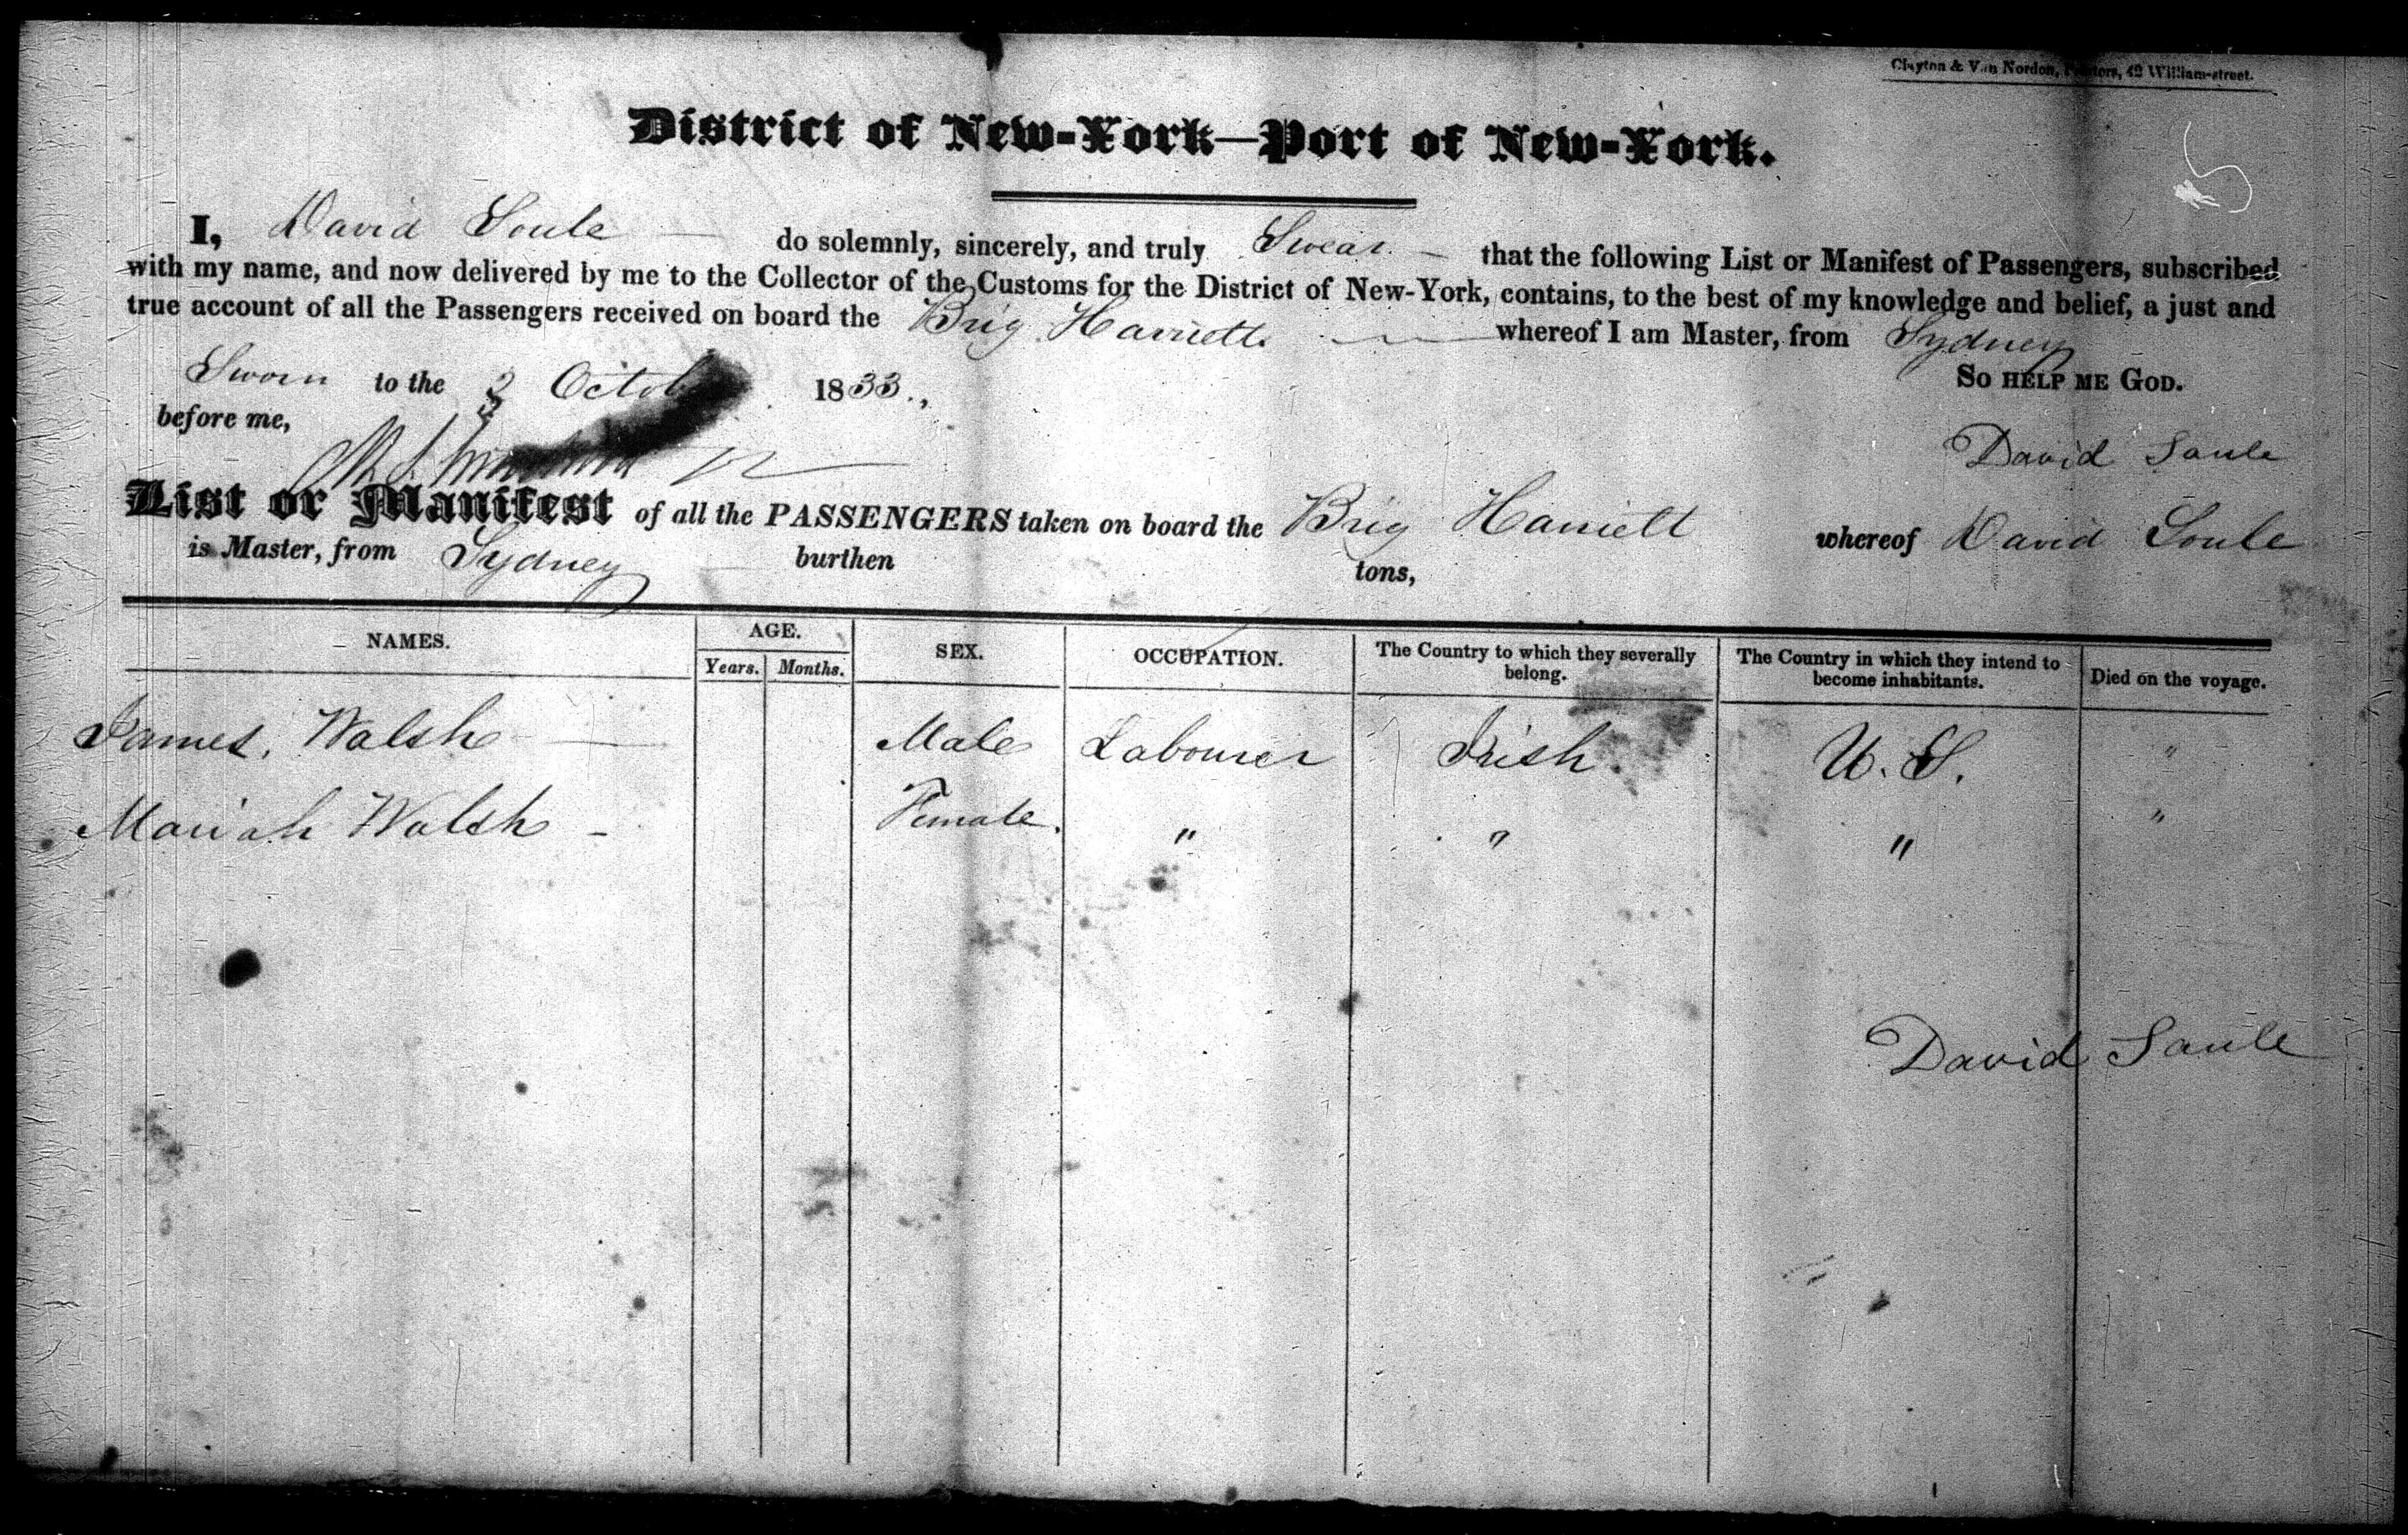 Clayton & Van Norden, Printers, 42 William-street.
District of New-York—Port of New-York.
I, David Soule — do solemnly, sincerely, and truly Swear — that the following List or Manifest of Passengers, subscribed
with my name, and now delivered by me to the Collector of the Customs for the District of New-York, contains, to the best of my knowledge and belief, a just and
true account of all the Passengers received on board the Brig Harriett — whereof I am Master, from Sydney
So HELP ME GOD.
Sworn to the 3 October 1833.,
before me,
David Soule
List or Manifest of all the PASSENGERS taken on board the Brig Harriett whereof David Soule
is Master, from Sydney burthen tons,
NAMES. AGE. Years. Months. SEX. OCCUPATION. The Country to which they severally belong. The Country in which they intend to become inhabitants. Died on the voyage.
James Walsh — Male Labourer Irish U. S. "
Mariah Walsh - Female. " " " "
David Soule